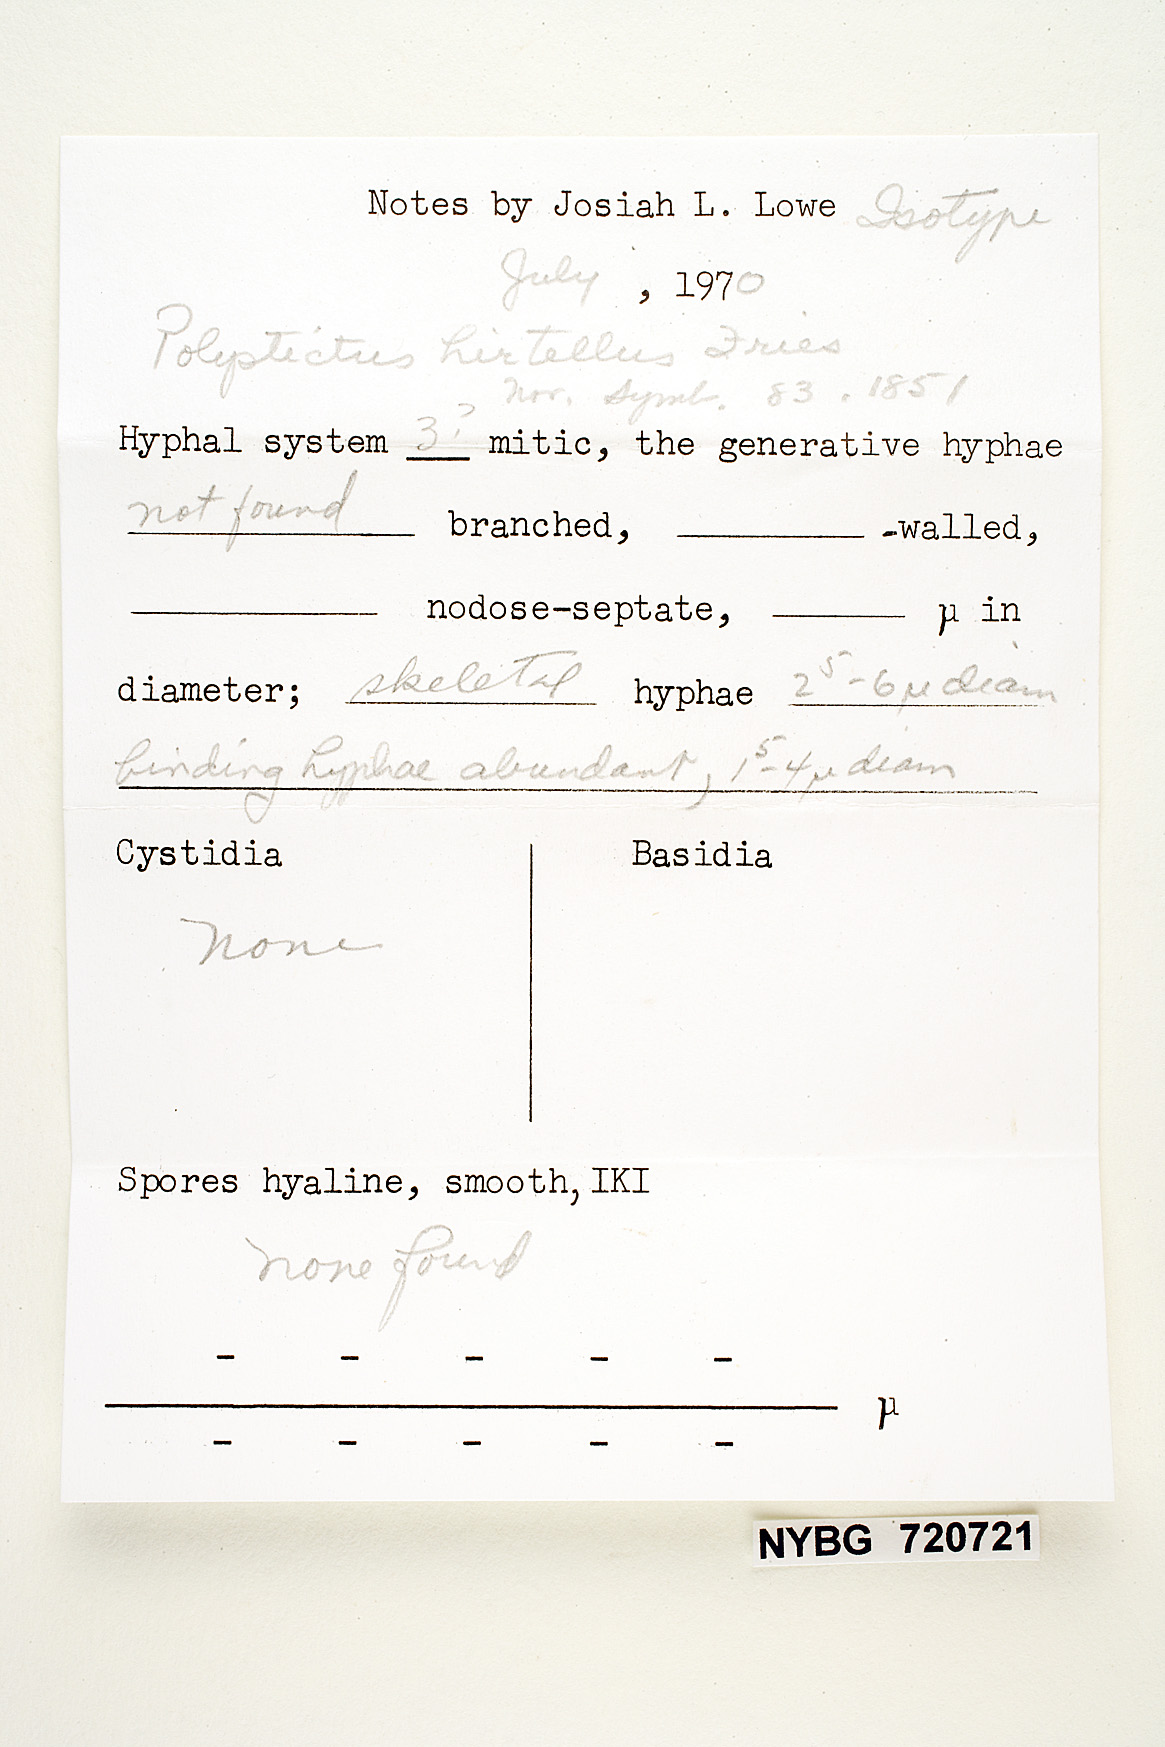 Notes by Josiah L. Lowe Isotype
July , 1970
Polystictus hirtellus Fries
Nov. Symb. 83. 1851
Hyphal system 3? mitic, the generative hyphae
not found branched, ______ -walled,
______ nodose-septate, ______ µ in
diameter; skeletal hyphae 2⁵-6µ diam
binding hyphae abundant, 1⁵-4µ diam
Cystidia Basidia
None
Spores hyaline, smooth, IKI
none found
- - - - -
______ µ
- - - - -
NYBG 720721